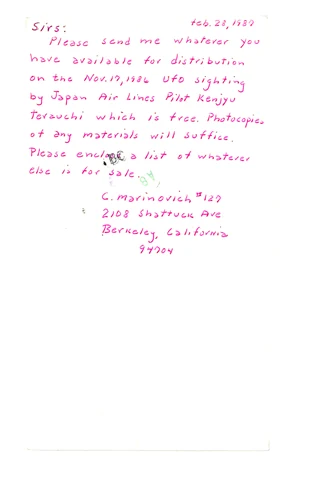 Feb. 28, 1987
Sirs:
Please send me whatever you
have available for distribution
on the Nov. 17, 1986 UFO sighting
by Japan Air Lines Pilot Kenjyu
Terauchi which is free. Photocopies
of any materials will suffice.
Please enclose a list of whatever
else is for sale.
C. Marinovich #127
2108 Shattuck Ave
Berkeley, California
94704